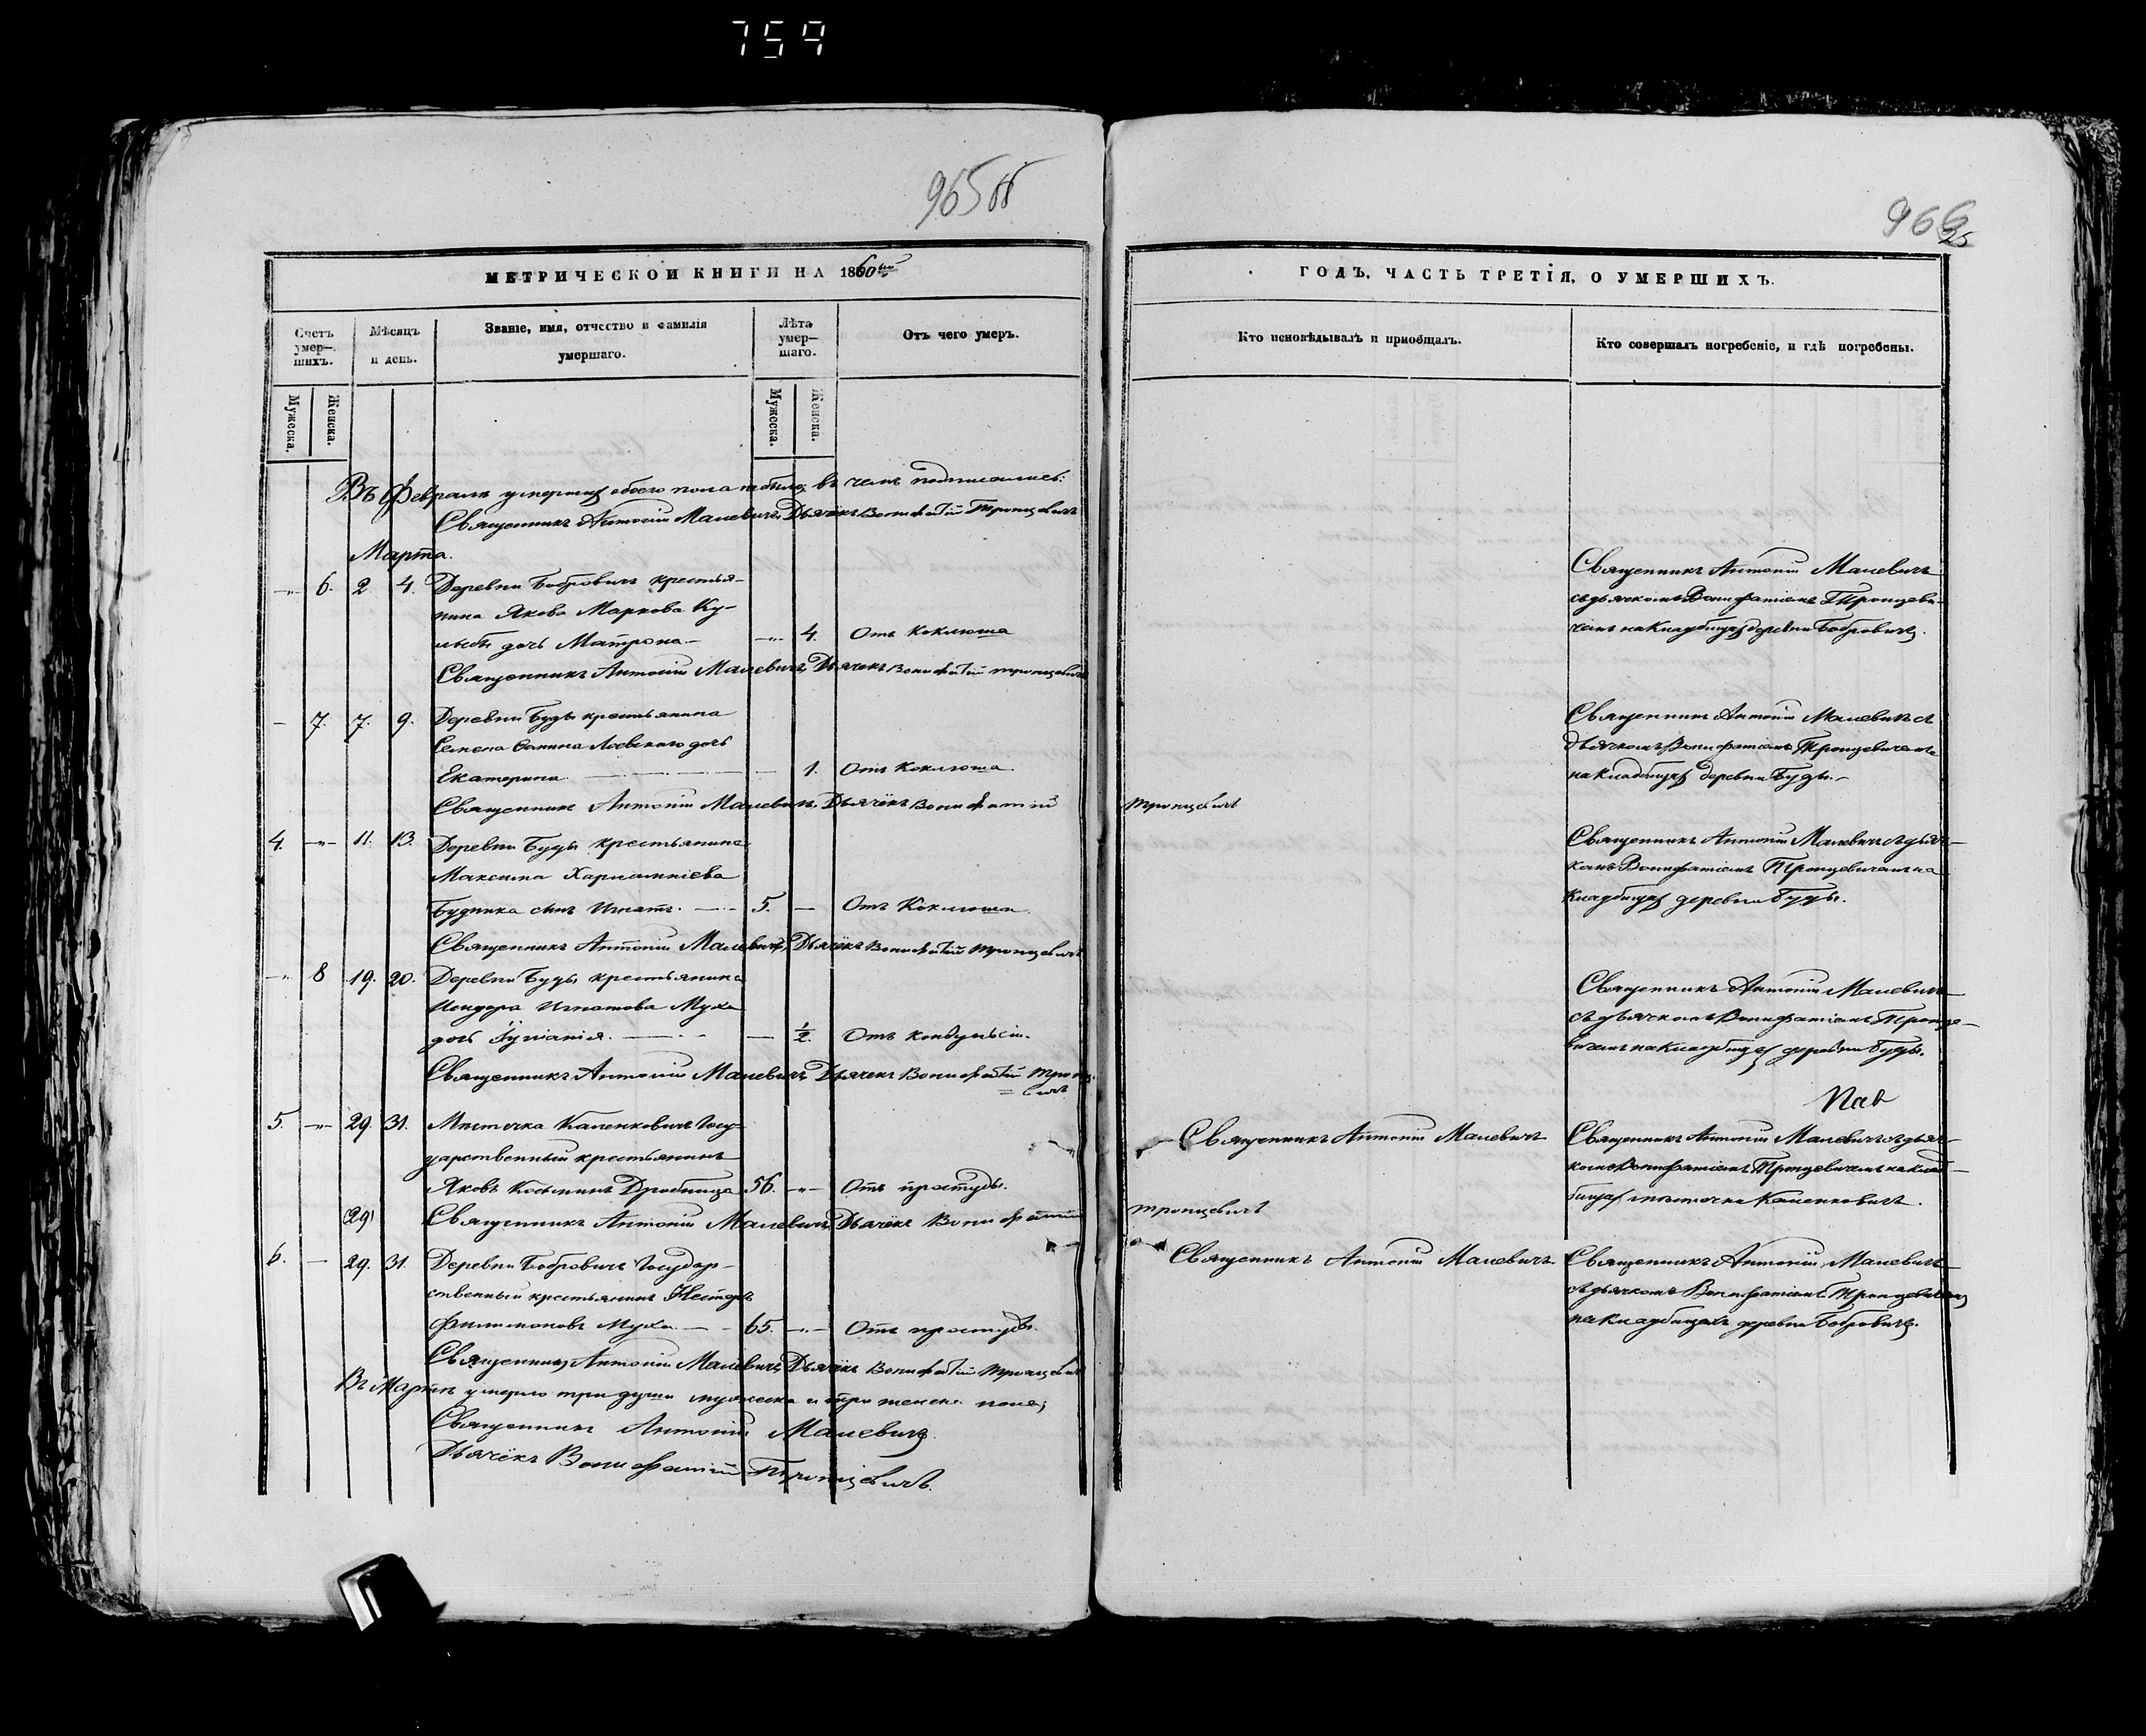 759
965 об
966
25
МЕТРИЧЕСКОЙ КНИГИ НА 1860ый
ГОДЪ, ЧАСТЬ ТРЕТІЯ, О УМЕРШИХЪ.
Счетъ умер—шихъ.
Мѣсяцъ и день.
Званіе, имя, отчество и фамилія умершаго.
Лѣта умер—шаго.
Отъ чего умеръ.
Кто исповѣдывалъ и пріобщалъ.
Кто совершалъ погребеніе, и гдѣ погребены.
Мужеска.
Женска.
Мужеска.
Женска.
Въ Февралѣ умершихъ обоего пола небыло; въ чемъ подписались:
Священникъ Антоній Малевичъ, Дьячекъ Вонифатій Тронцевичъ
Марта.
6. 2 4. Деревни Бобровичъ крестья-
нина Якова Маркова Ку-
дочь Матрона — 4. Отъ Коклюша
Священникъ Антоній Малевичъ, Дьячекъ Вонифатій Тронцевичъ
Священникъ Антоній Малевичъ
съ дьячкомъ Вонифатіемъ Тронцеви-
чемъ на Кладбищѣ деревни Бобровичъ.
— 7. 7. 9. Деревни Буды крестьянина
Семена дочь
Екатерина — 1. Отъ Коклюша.
Священникъ Антоній Малевичъ, Дьячёкъ Вонифатій Тронцевичъ
Священникъ Антоній Малевичъ съ
дьячкомъ Вонифатіемъ Тронцевичемъ
на Кладбищѣ деревни Буды.-
4. —"— 11. 13. Деревни Буды крестьянина
Максима Харлампіева
Будника сынъ Игнатъ. — 5. — Отъ Коклюша.
Священникъ Антоній Малевичъ, Дьячёкъ Вонифатій Тронцевичъ
Священникъ Антоній Малевичъ съ дьяч-
комъ Вонифатіемъ Тронцевичемъ на
Кладбищѣ деревни Буды.
—"— 8 19. 20. Деревни Буды крестьянина
Исидора Игнатова Муха
дочь Іуліанія. — — 1/2. Отъ конвульсіи.
Священникъ Антоній Малевичъ, Дьячекъ Вонифатій Тронце-
=вичъ
Священникъ Антоній Малевичъ
съ дьячкомъ Вонифатіемъ Тронце-
вичемъ на Кладбищѣ деревни Буды.
5. —"— 29. 31. Мѣстечка Каленковичъ Госу-
дарственный крестьянинъ
Яковъ Дробница 56. —"— Отъ простуды.
(29) Священникъ Антоній Малевичъ, Дьячёкъ Вонифатій Тронцевичъ
Священникъ Антоній Малевичъ
Священникъ Антоній Малевичъ съ дьяч-
комъ Вонифатіемъ Тронцевичемъ на клад-
бищѣ мѣстечка Каленковичъ.
6. — 29. 31. Деревни Бобровичъ Государ-
ственный крестьянинъ Несторъ
Филимоновъ Муха. — 65. —"— Отъ простуды.
Священникъ Антоній Малевичъ, Дьячёкъ Вонифатій Тронцевичъ
Священникъ Антоній Малевичъ
Священникъ Антоній Малевичъ
съ дьячкомъ Вонифатіемъ Тронцевичемъ
на Кладбищахъ деревни Бобровичъ.
Въ Мартѣ умерло три души мужеска и три женска пола;
Священникъ Антоній Малевичъ.
Дьячёкъ Вонифатій Тронцевичъ.